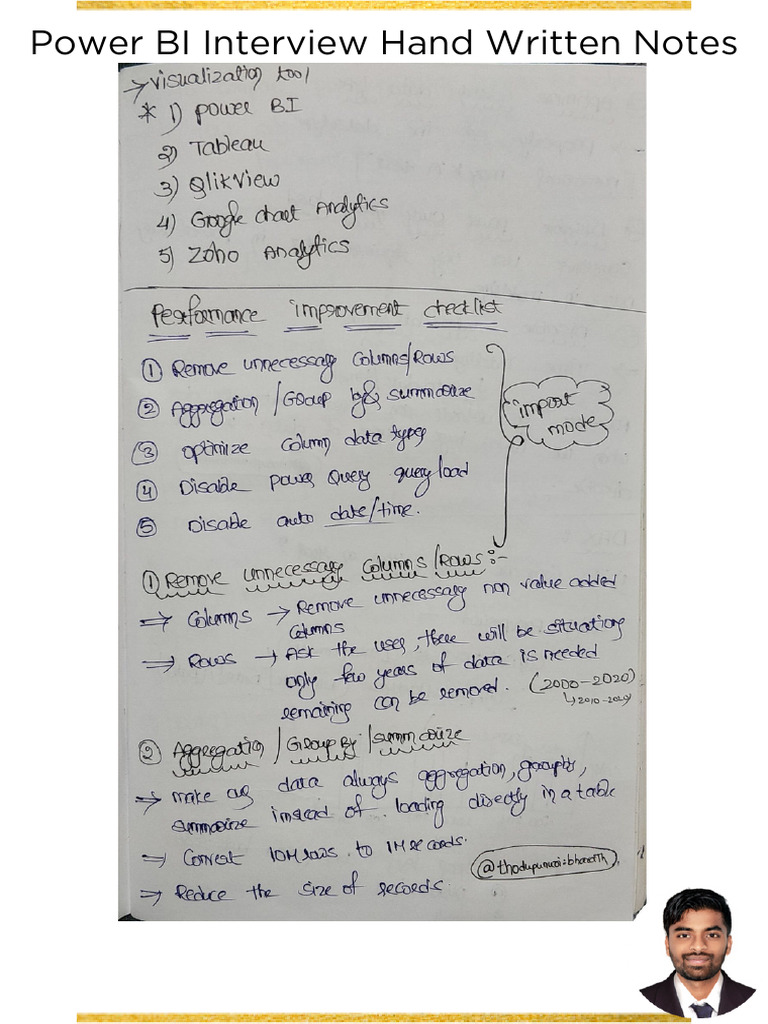 Power BI Interview Hand Written Notes
→ visualization tool
* 1) Power BI
2) Tableau
3) QlikView
4) Google chart Analytics
5) Zoho Analytics
Performance improvement checklist
① Remove unnecessary Columns/Rows
② Aggregation / Group by & summarize
③ optimize column data types
④ Disable Power Query query load
⑤ Disable auto date/time.
import
mode
① Remove unnecessary Columns/Rows:-
⇒ Columns → Remove unnecessary non value added
columns
⇒ Rows → Ask the user, there will be situations
only few years of data is needed
remaining can be removed. (2000-2020)
↳ 2010-2020
② Aggregation / Group By / summarize
⇒ make data always aggregation, groupby,
summarize instead of loading directly in a table
⇒ Convert 10M rows to 1M records.
⇒ Reduce the size of records.